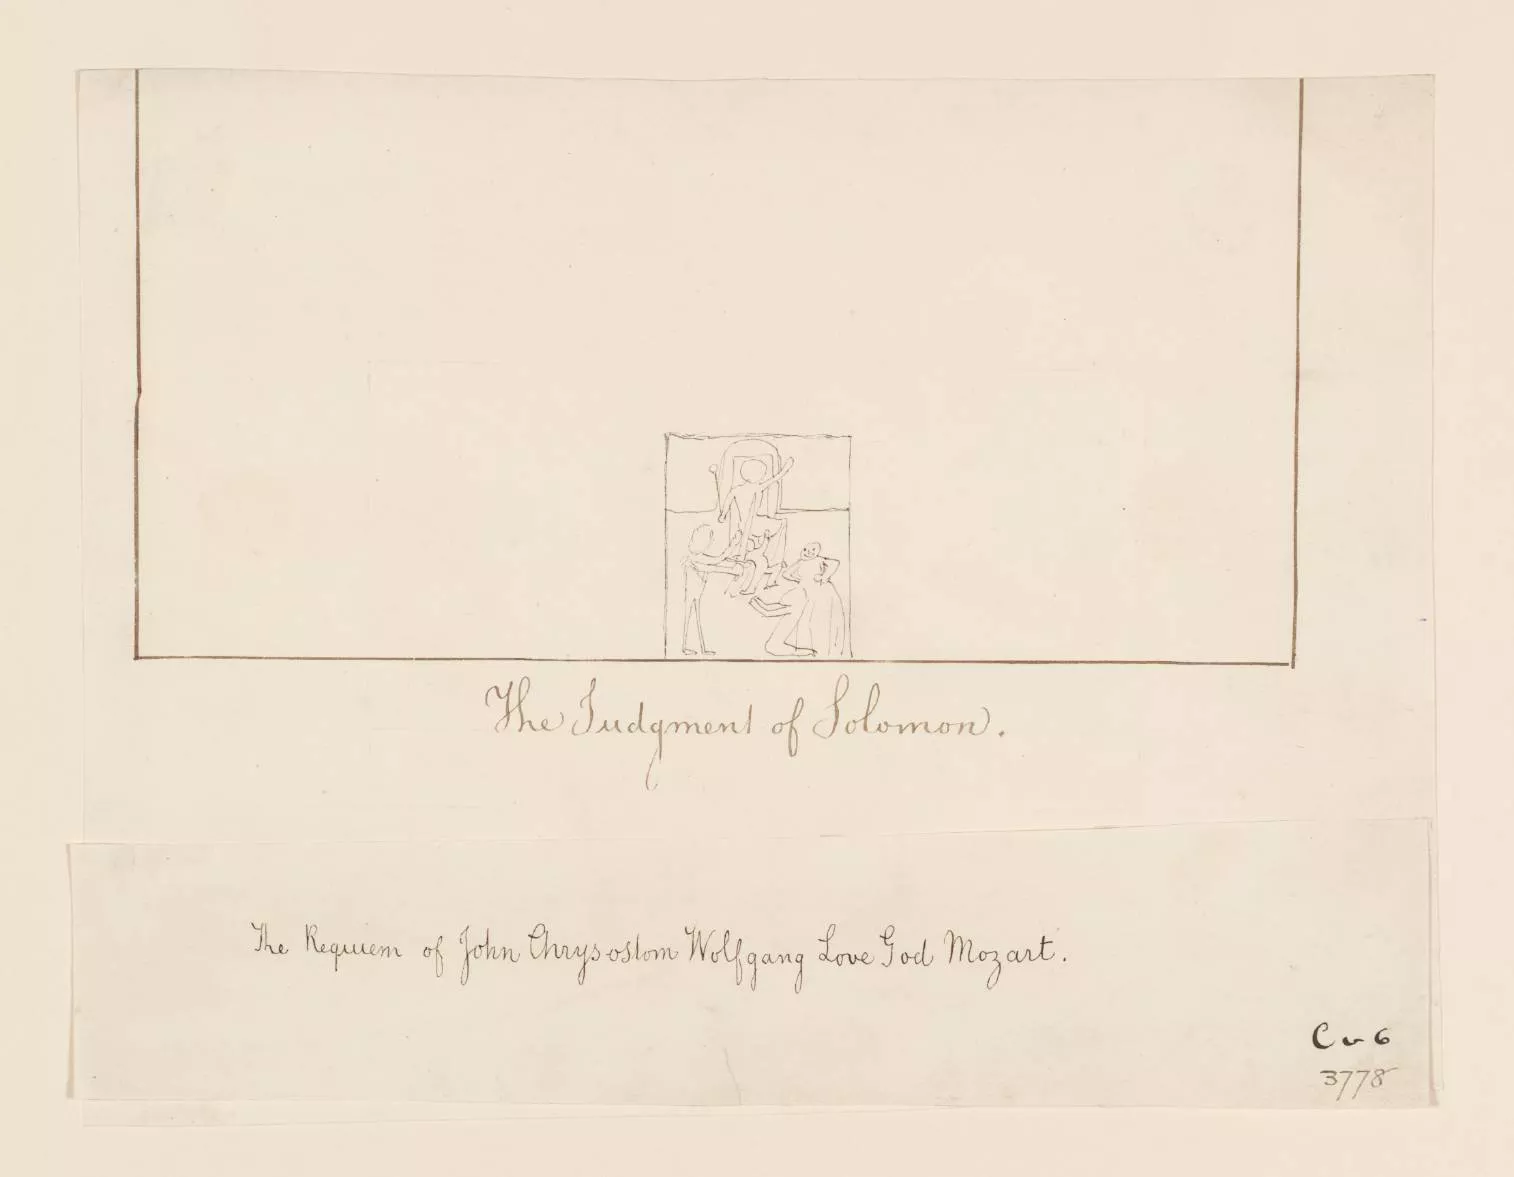 The Judgment of Solomon.
The Requiem of John Chrysostom Wolfgang Love God Mozart.
C v 6
3778